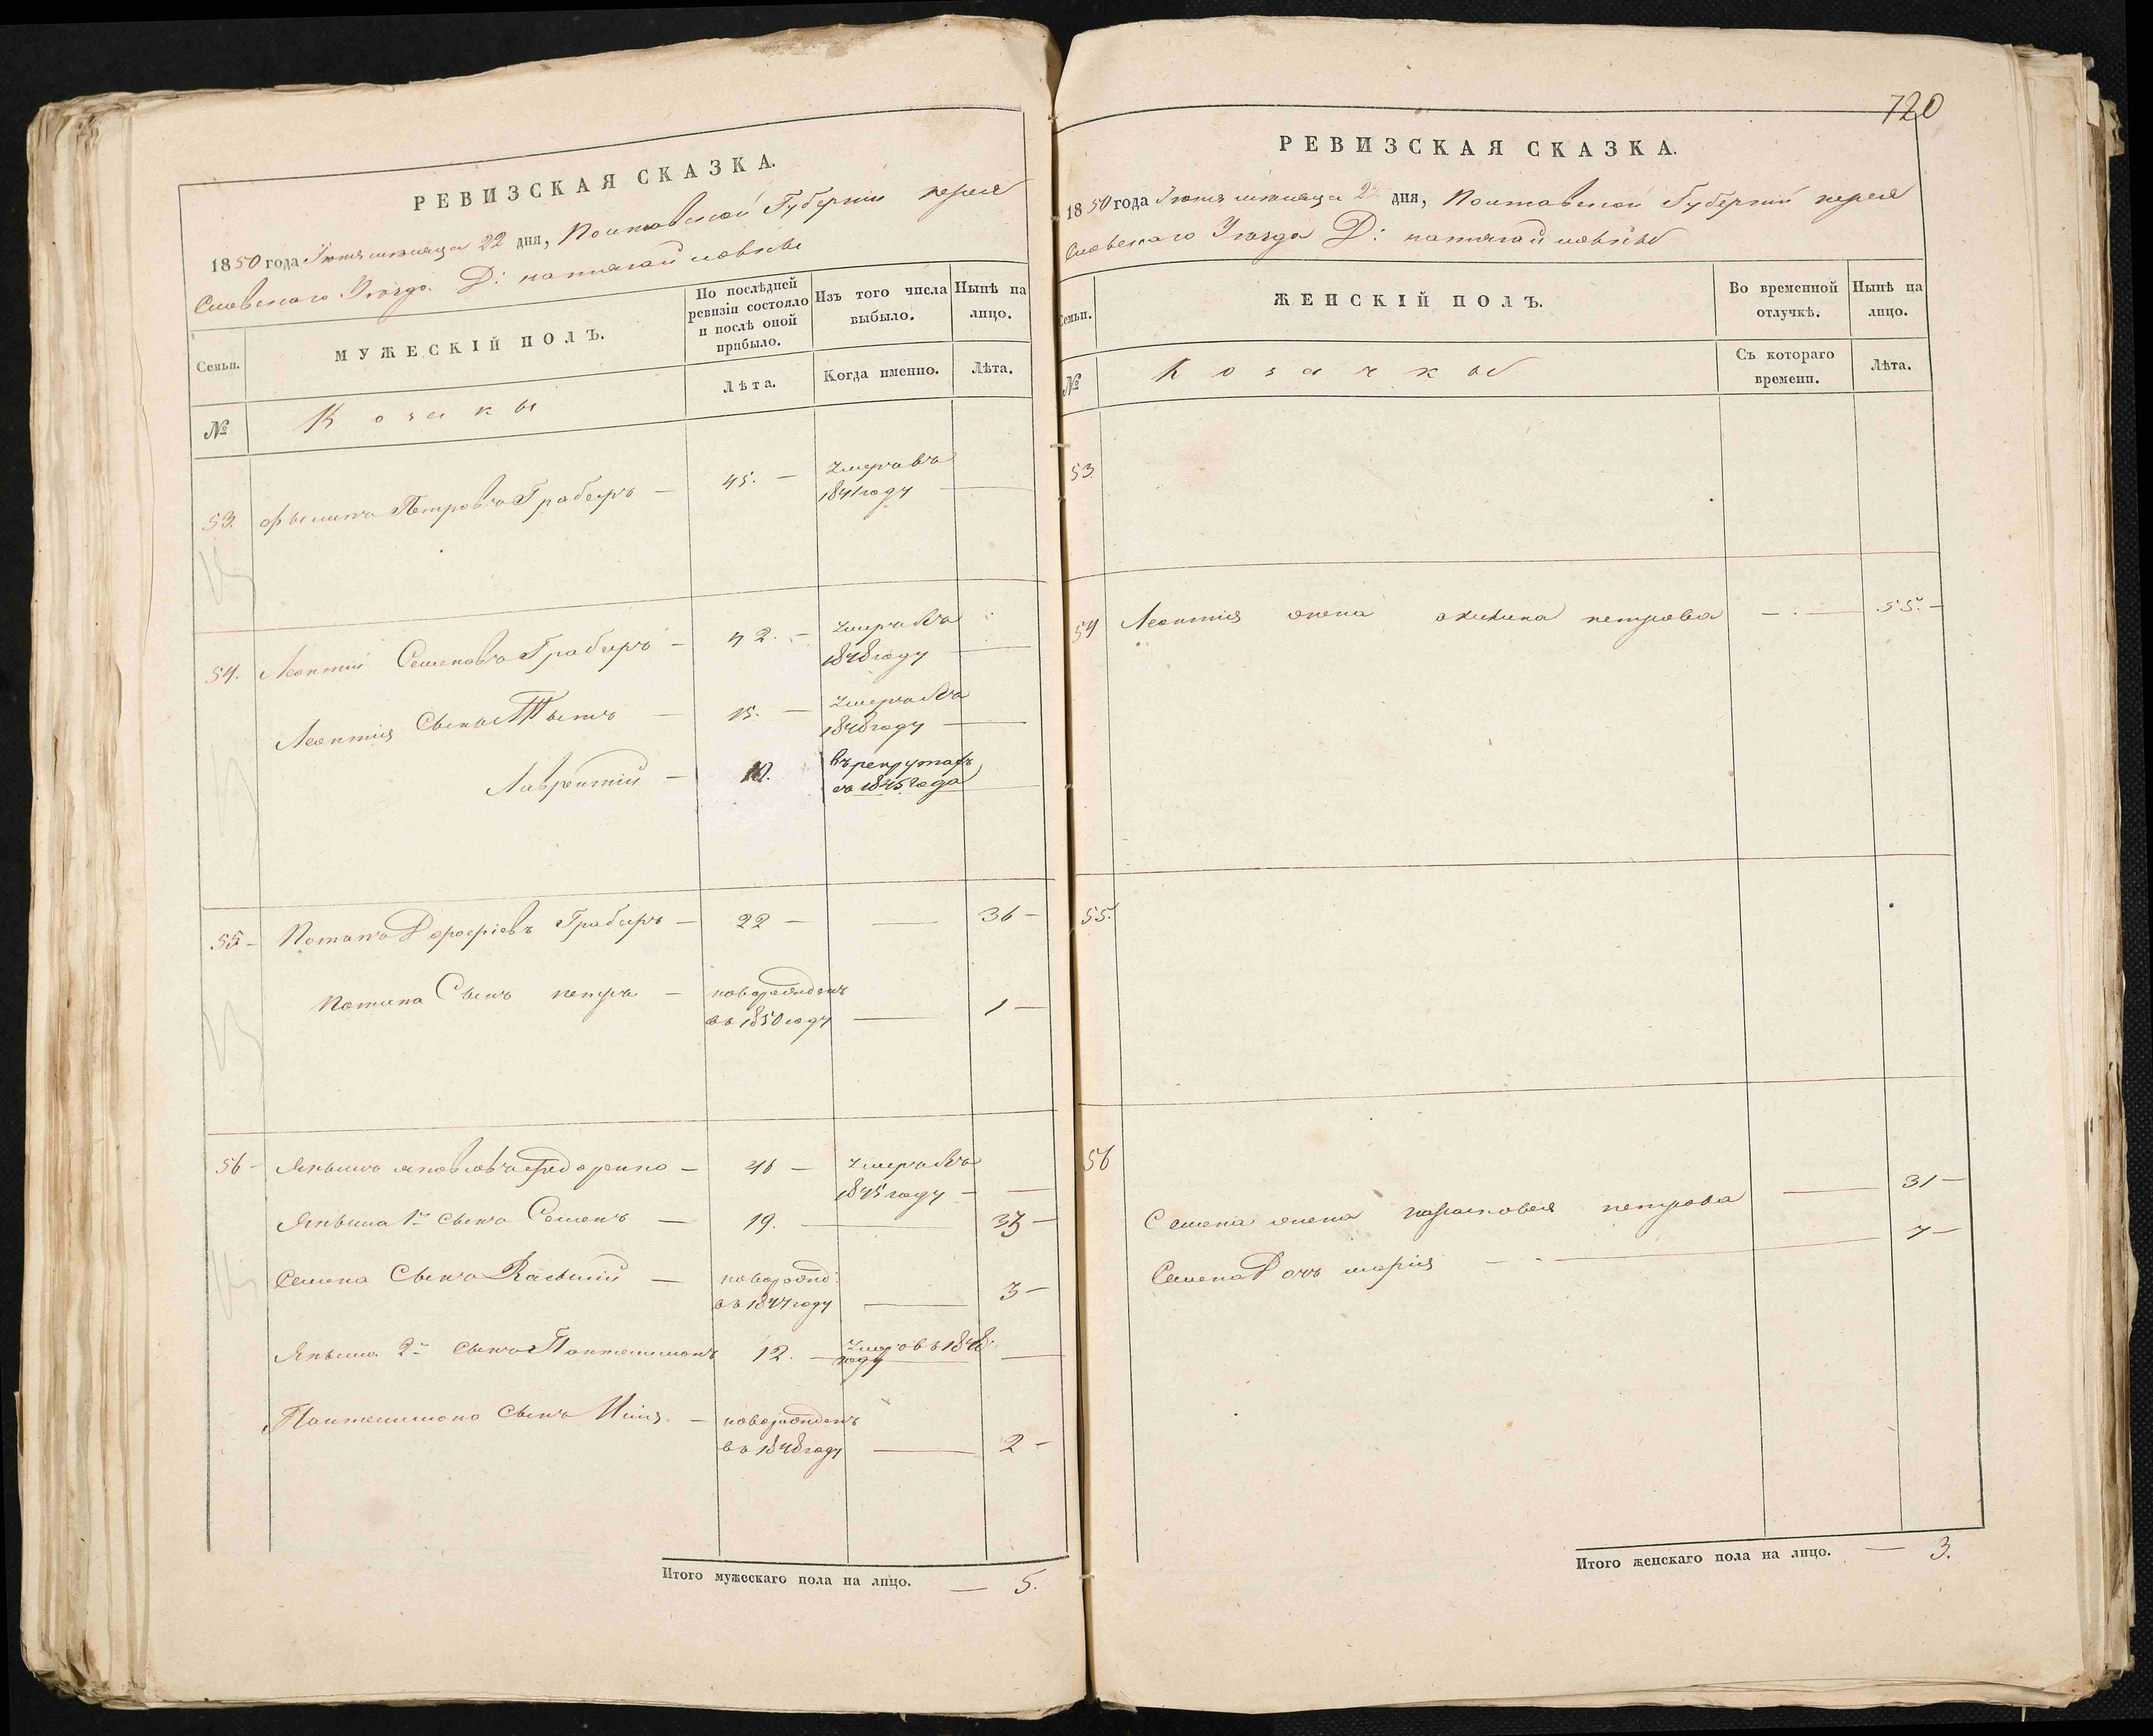 РЕВИЗСКАЯ СКАЗКА.
1850 года Іюня мѣсяца 22 дня, Полтавской Губерніи перея
Славскаго Уѣзда Д:
Семьи.
МУЖЕСКІЙ ПОЛЪ.
По послѣдней ревизіи состояло и послѣ оной прибыло.
Изъ того числа выбыло.
Нынѣ на лицо.
Лѣта.
Когда именно.
Лѣта.
№
Козаки
53. Филипъ Петровъ Грабаръ — 45. — Умеръ въ
1841 году —
54. Леонтій Семеновъ Грабаръ — 42. — Умеръ въ
1848 году —
Леонтія Сыны Титъ — 15. — Умеръ въ
1848 году —
Лаврентій — въ рекрутахъ
съ 1845 года
55 — Потапъ Дорофіевъ Грабаръ — 22 — — 36 —
Потапа Сынъ петръ — новорожденъ
въ 1850 году — 1 —
56 — Якымъ яковлевъ Федоренко — 46 — Умеръ въ
1845 году — —
Якыма 1й сынъ Семенъ — 19. — 33 —
Семена Сынъ Василий — новорожд:
въ 1847 году — 3 —
Якыма 2й сынъ Пантелимонъ 12. — Умеръ въ 1848
году —
Пантелимона Сынъ Илія — новорожденъ
въ 1848 году — 2 —
Итого мужескаго пола на лицо. — 5.
720
РЕВИЗСКАЯ СКАЗКА.
1850 года Іюня мѣсяца 22 дня, Полтавской Губерніи перея
Славскаго Уѣзда Д:
Семьи.
ЖЕНСКІЙ ПОЛЪ.
Во временной отлучкѣ.
Нынѣ на лицо.
№
Козачки
Съ котораго времени.
Лѣта.
53.
54 Леонтія жена акилина петрова — . — 55. —
55.
56
Семена жена парасковея петрова — 31 —
Семена Дочь марія — 7 —
Итого женскаго пола на лицо. — 3.